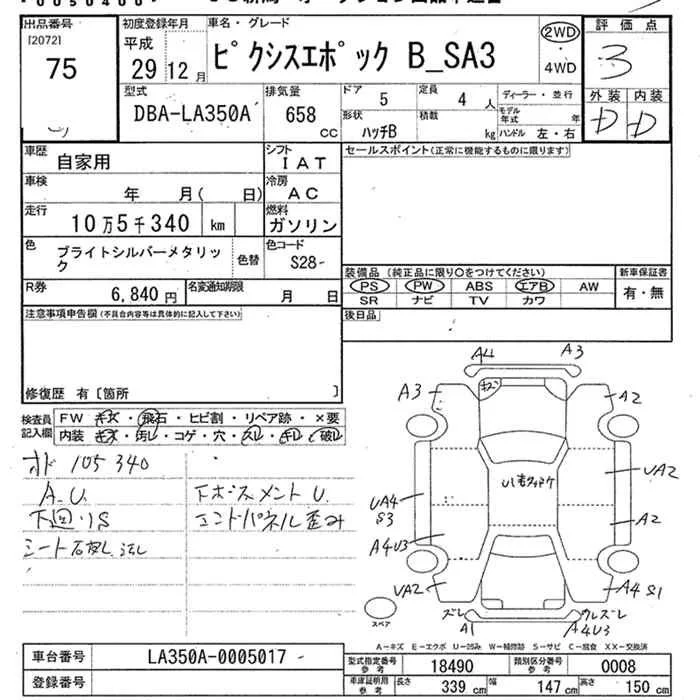 出品番号
[2072]
75
初度登録年月
平成
29年12月
車名・グレード
ピクシスエポック B_SA3
2WD
・
4WD
評価点
3
外装 内装
D D
型式
DBA-LA350A
排気量
658
cc
ドア
5
定員
4 人
ディーラー・並行
モデル年式 年
形状
ハッチB
積載
kg
ハンドル 左・右
車歴
自家用
シフト
IAT
セールスポイント(正常に機能するものに限ります)
車検
年 月( 日)
冷房
AC
走行
10万5千340 km
燃料
ガソリン
色
ブライトシルバーメタリック
色替
色コード
S28-
R券
6,840円
名変通知期限
月 日
装備品 (純正品に限り○をつけてください)
PS PW ABS エアB AW
SR ナビ TV カワ
新車保証書
有・無
注意事項申告欄(不具合内容等は具体的に記入して下さい)
後日品
修復歴 有〔箇所 〕
検査員記入欄
FW キズ・飛石・ヒビ割・リペア跡・×要
内装 キズ・汚レ・コゲ・穴・スレ・キレ・破レ
オド 105340
A.U.
下ホースメントU.
下回りS
エンドパネル歪み
A4
A3
A3
A2
キズ
UA2
UA4
S3
A2
A4U3
UA2
A4 S1
ズレ
A1
ズレ
A4U3
スペア
A-キズ E-エクボ U-凹み W-補修跡 S-サビ C-腐食 XX-交換済
車台番号
LA350A-0005017-
登録番号
型式指定番号参考
18490
類別区分番号参考
0008
車庫証明用参考
長さ 339 cm
幅 147 cm
高さ 150 cm